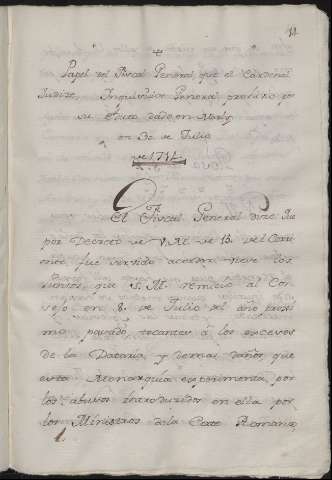 11
+
Papel del Fiscal General, que el Cardenal
Judize, Inquisidor General prohivio por
su Edicto dado en Marly
en 30 de Julio
de 1714
Señor
El Fiscal General dice que
por Decreto de V. M. de 13 del Corri
ente, fue servido acordar viese los
puntos, que S. M. remitio al Con
sejo en 8 de Julio del año proxi
mo pasado, tocantes á los excesos
de la Dataria, y demas daños, que
esta Monarquia experimenta por
los abusos introducidos en ella por
los Ministros de la Corte Romana,
1.